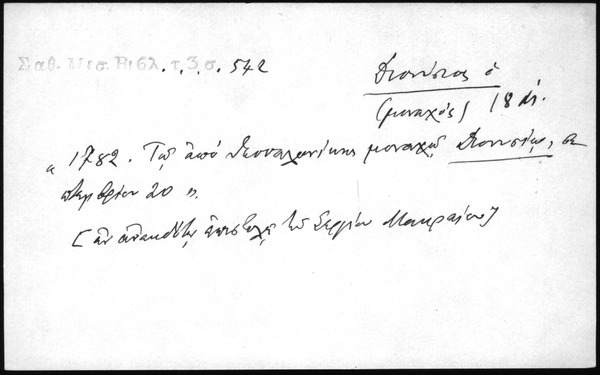 Σαθ. Μεσ. Βιβλ. τ. 3 σ. 542
Διονύσιος ὁ
(μοναχός) 18 αἰ.
"1782. Τῷ ἀπό Θεσσαλονίκης μοναχῷ Διονυσίῳ, σε
πτεμβρίου 20 ".
[ἐν ἐπιστολῇ τοῦ Σεργίου Μακραίου]